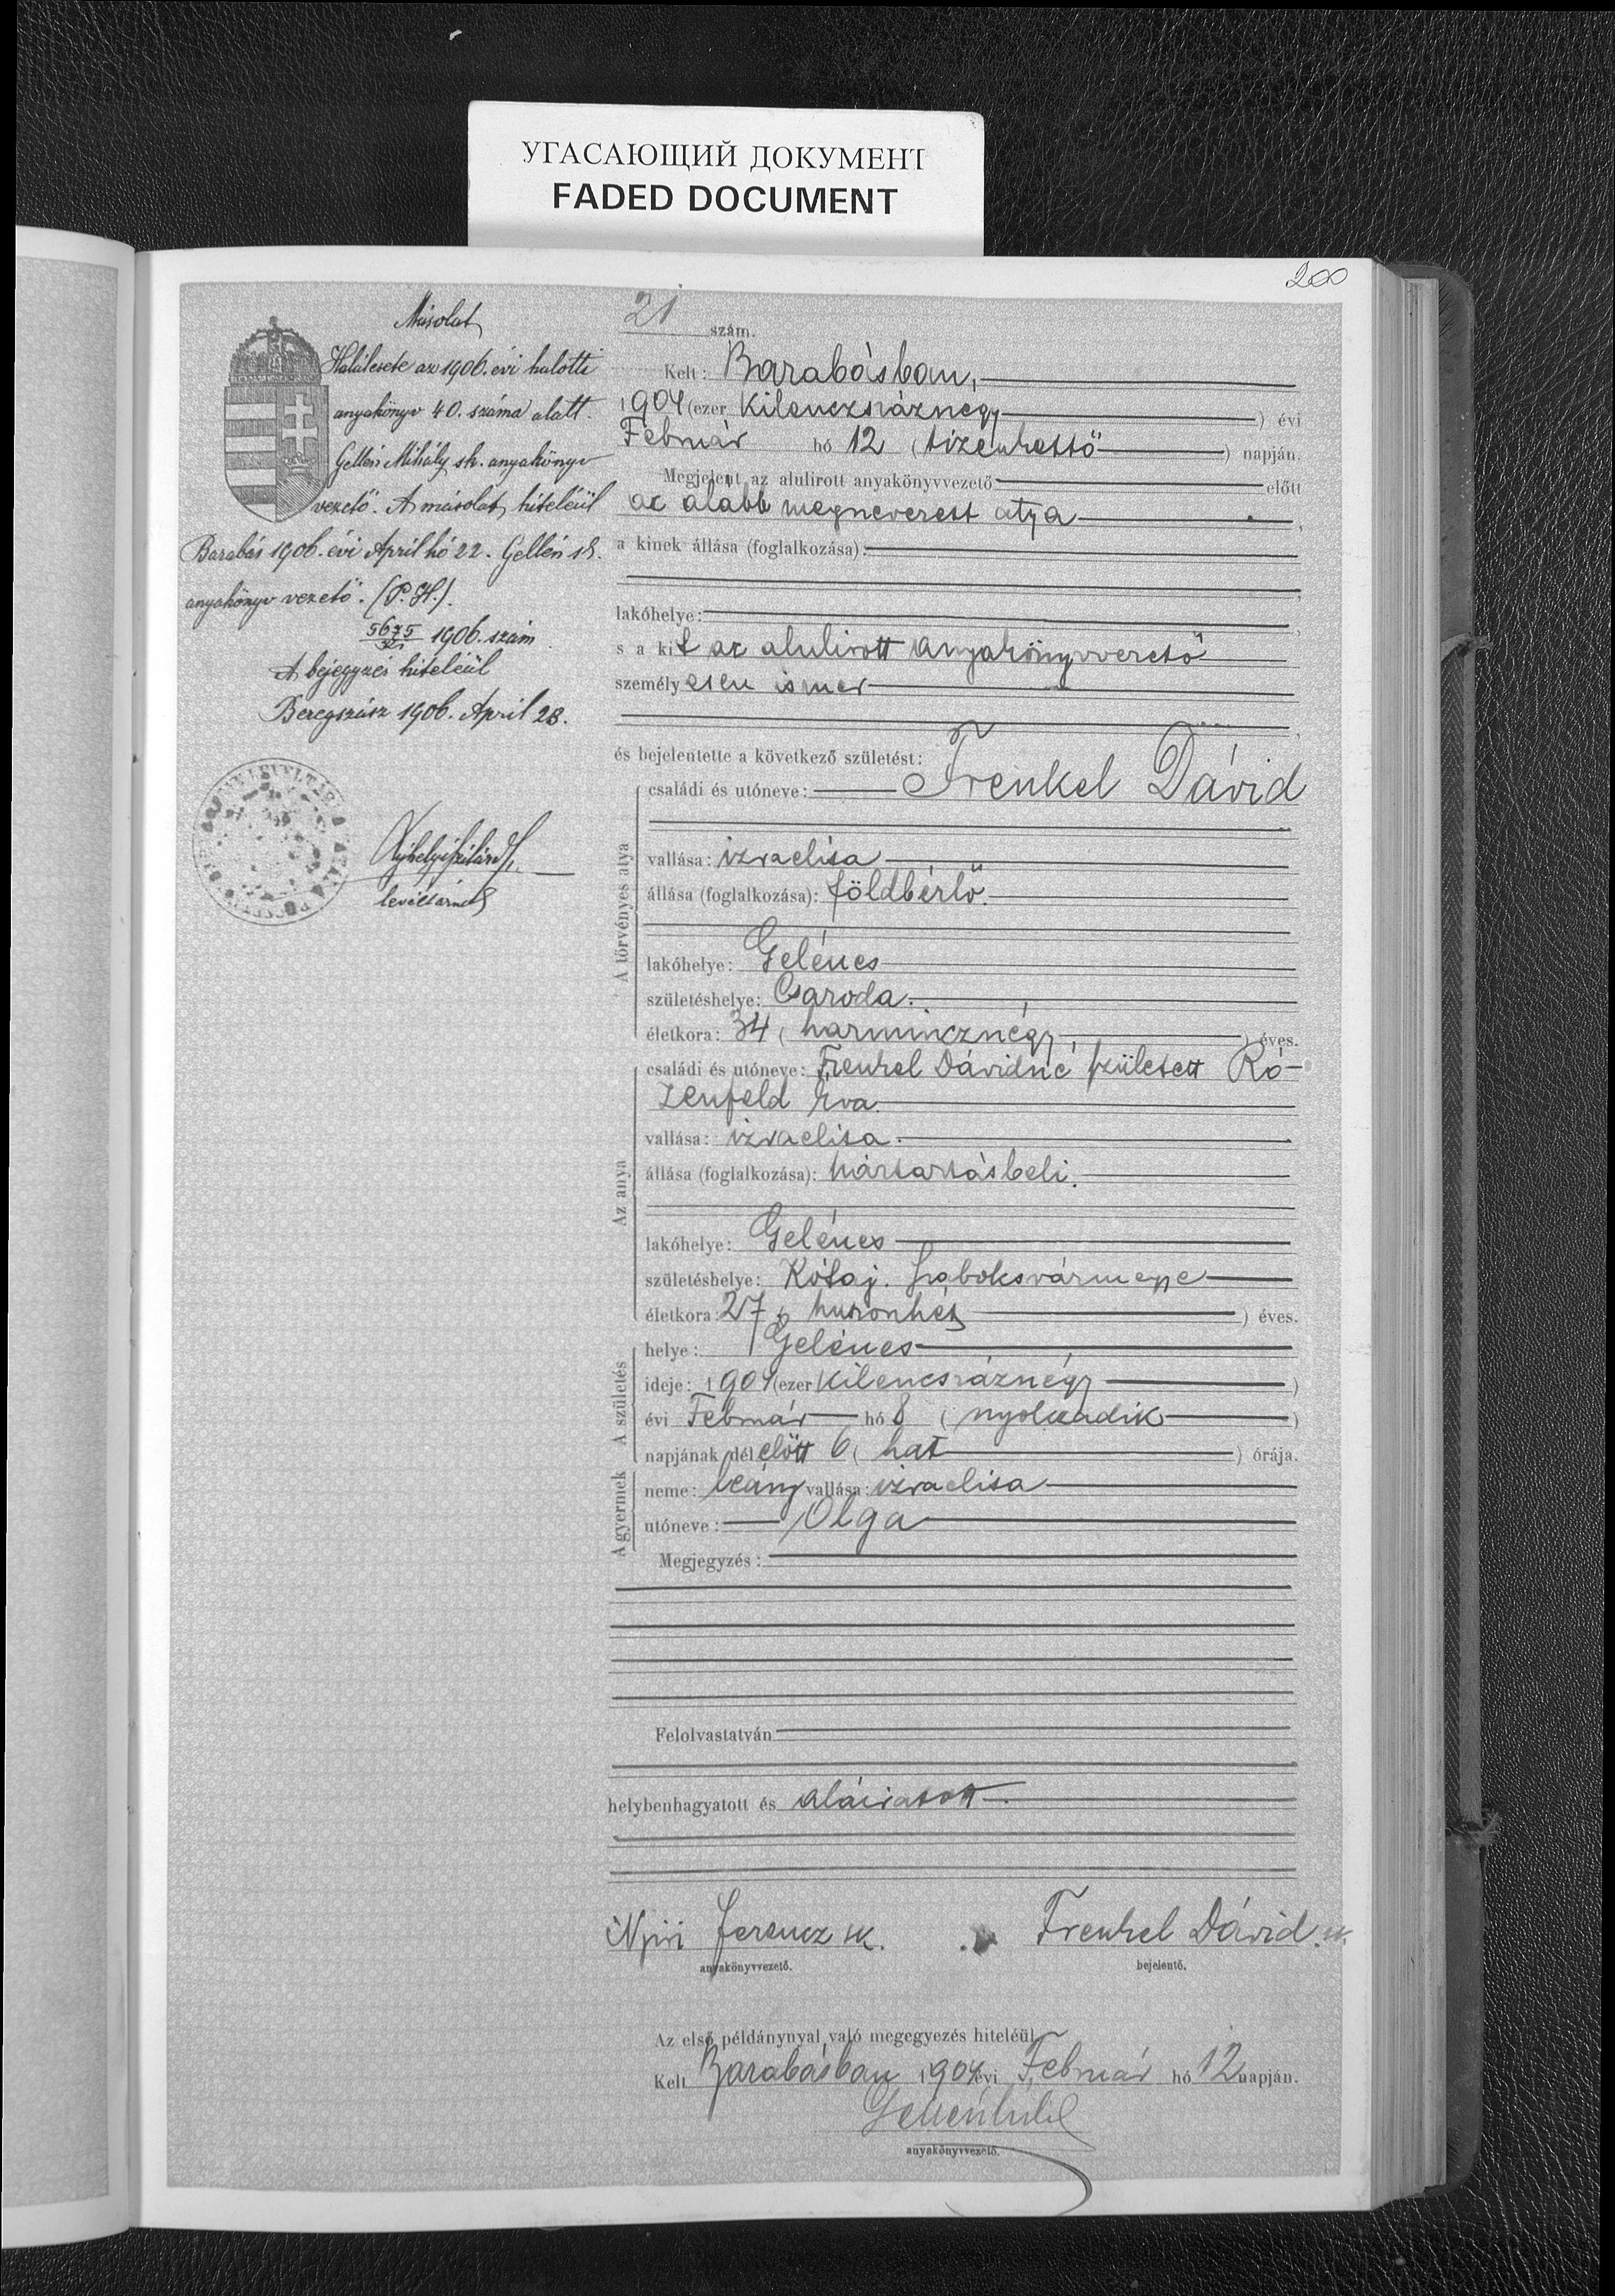 УГАСАЮЩИЙ ДОКУМЕНТ
FADED DOCUMENT
200
Másolat
Halálesete az 1906. évi halotti
anyakönyv 40. száma alatt.
Gellén Mihály sk. anyakönyv
vezető. A másolat hiteléül
Barabás 1906. évi April hó 22. Gellén sk.
anyakönyv vezető. (P. H.).
5675 1906. szám
A bejegyzés hiteléül
Beregszász 1906. April 28.
levéltárnok
21 szám.
Kelt: Barabásban,
1904 (ezer kilenczszáznégy ) évi
Február hó 12 (tizenkettő ) napján.
Megjelent az alulirott anyakönyvvezető előtt
az alább megnevezett atya ,
a kinek állása (foglalkozása):
lakóhelye:
s a kit az alulirott anyakönyvvezető
személyesen ismer
és bejelentette a következő születést:
A törvényes atya
családi és utóneve: Frenkel Dávid
vallása: izraelita
állása (foglalkozása): földbérlő.
lakóhelye: Gelénes
születéshelye: Csaroda.
életkora: 34 (harmincznégy ) éves.
Az anya
családi és utóneve: Frenkel Dávidné született Ró-
zenfeld Éva.
vallása: izraelita.
állása (foglalkozása): háztartásbeli.
lakóhelye: Gelénes
születéshelye: Kótaj. Szabolcsvármegye
életkora: 27 (huszonhét ) éves.
A születés
helye: Gelénes
ideje: 1904 (ezer kilencszáznégy )
évi Február hó 8 (nyolcadik )
napjának délelőtt 6 (hat ) órája.
A gyermek
neme: leány vallása: izraelita
utóneve: Olga
Megjegyzés:
Felolvastatván
helybenhagyatott és aláiratott.
Nyiri Ferencz sk. Frenkel Dávid sk.
anyakönyvvezető. bejelentő.
Az első példánynyal való megegyezés hiteléül
Kelt Barabásban 1904 évi Február hó 12 napján.
anyakönyvvezető.